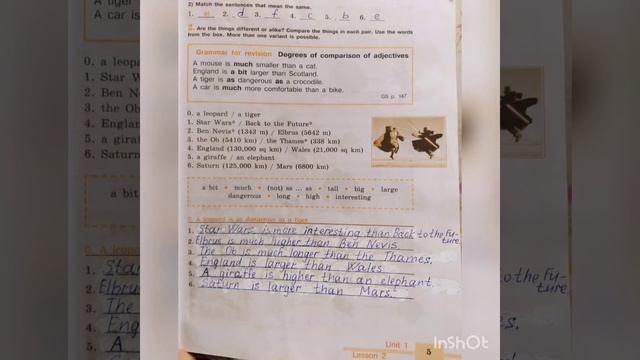 2) Match the sentences that mean the same.
1. 2. d 3. f 4. c 5. b 6. e
2. Are the things different or alike? Compare the things in each pair. Use the words
from the box. More than one variant is possible.
Grammar for revision Degrees of comparison of adjectives
A mouse is much smaller than a cat.
England is a bit larger than Scotland.
A tiger is as dangerous as a crocodile.
A car is much more comfortable than a bike.
GS p. 147
0. a leopard / a tiger
1. Star Wars* / Back to the Future*
2. Ben Nevis* (1343 m) / Elbrus (5642 m)
3. the Ob (5410 km) / the Thames* (338 km)
4. England (130,000 sq km) / Wales (21,000 sq km)
5. a giraffe / an elephant
6. Saturn (125,000 km) / Mars (6800 km)
a bit • much • (not) as ... as • tall • big • large
dangerous • long • high • interesting
0. A leopard is as dangerous as a tiger.
1. Star Wars is more interesting than Back to the Fu-
ture
2. Elbrus is much higher than Ben Nevis
3. The Ob is much longer than the Thames.
4. England is larger than Wales
5. A giraffe is higher than an elephant.
6. Saturn is larger than Mars.
Unit 1
Lesson 2
5
InShOt
A tiger
A car is
0. a leopard
1. Star W
2. Ben N
3. the Ob
4. Englan
5. a giraf
6. Saturn
a bit
0. A leopa
1. Sta
2. Elbru
3. The
4. Eng
5. A
o the Fu-
ture
s.